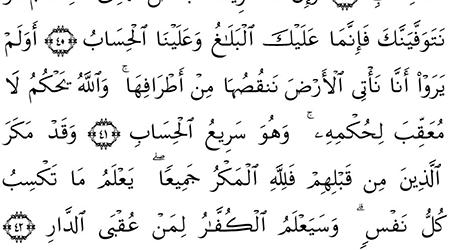 نَتَوَفَّيَنَّكَ فَإِنَّمَا عَلَيْكَ ٱلْبَلَٰغُ وَعَلَيْنَا ٱلْحِسَابُ ﴿٤٠﴾ أَوَلَمْ
يَرَوْا۟ أَنَّا نَأْتِى ٱلْأَرْضَ نَنقُصُهَا مِنْ أَطْرَافِهَا ۚ وَٱللَّهُ يَحْكُمُ لَا
مُعَقِّبَ لِحُكْمِهِۦ ۚ وَهُوَ سَرِيعُ ٱلْحِسَابِ ﴿٤١﴾ وَقَدْ مَكَرَ
ٱلَّذِينَ مِن قَبْلِهِمْ فَلِلَّهِ ٱلْمَكْرُ جَمِيعًا ۖ يَعْلَمُ مَا تَكْسِبُ
كُلُّ نَفْسٍ ۗ وَسَيَعْلَمُ ٱلْكُفَّٰرُ لِمَنْ عُقْبَى ٱلدَّارِ ﴿٤٢﴾